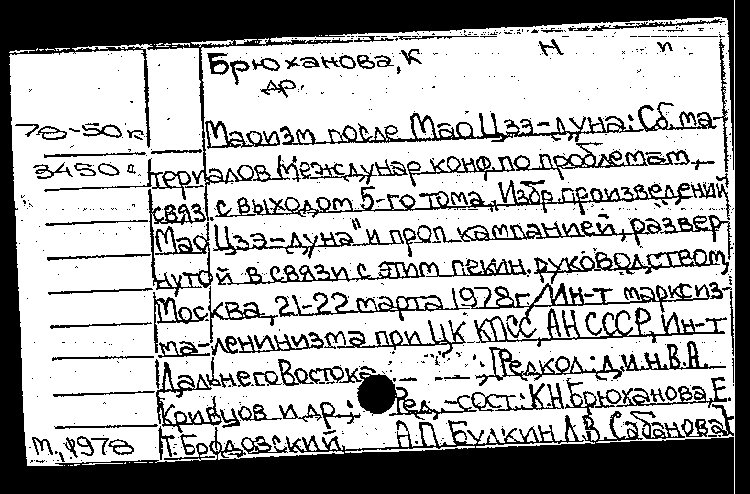 Брюханова, К Н п
др.
78-50к Маоизм после Мао Цзэ-дуна: Сб. ма-
34502 териалов Междунар конф. по проблемам,
связ с выходом 5-го тома „Избр. произведений
Мао Цзэ-дуна" и проп кампанией, развер-
нутой в связи с этим пекин. руководством,
Москва, 21-22 марта 1978г/Ин-т марксиз-
ма-ленинизма при ЦК КПСС, АН СССР, Ин-т
Дальнего Востока ; [Редкол.: д.и.н. В.А.
Кривцов и др.; Ред.-сост.: К.Н. Брюханова, Е.
М., 1978 Т. Бродовский, А.П. Булкин, Л.В. Сабанова]